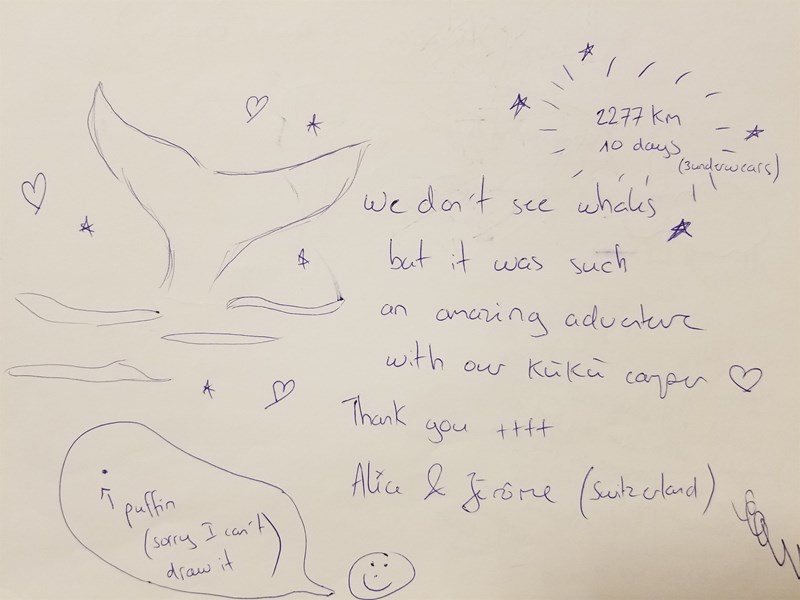 2277 km
10 days
(3 underwears)
We don't see whales
but it was such
an amazing adventure
with our KūKū camper
Thank you ++++
Alice & Jérôme (Switzerland)
puffin
(sorry I can't)
draw it